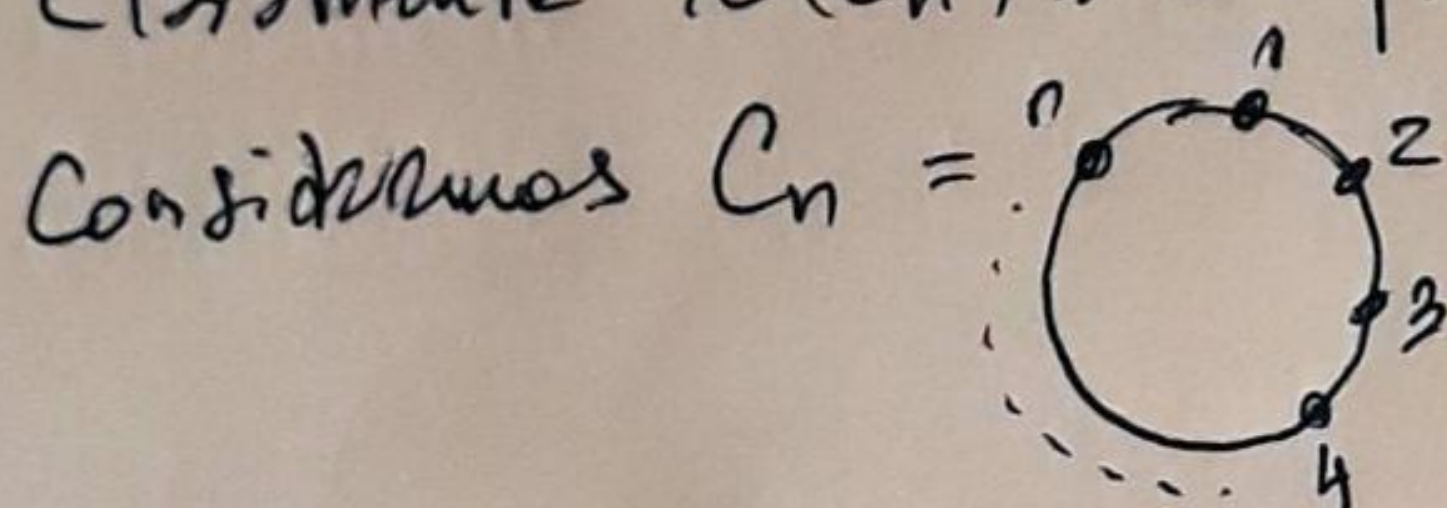 Consideremos Cn =
n 1 2 3 4